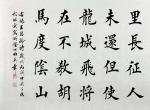 里長征人
未還但使
龍城飛將
在不教胡
馬度陰山